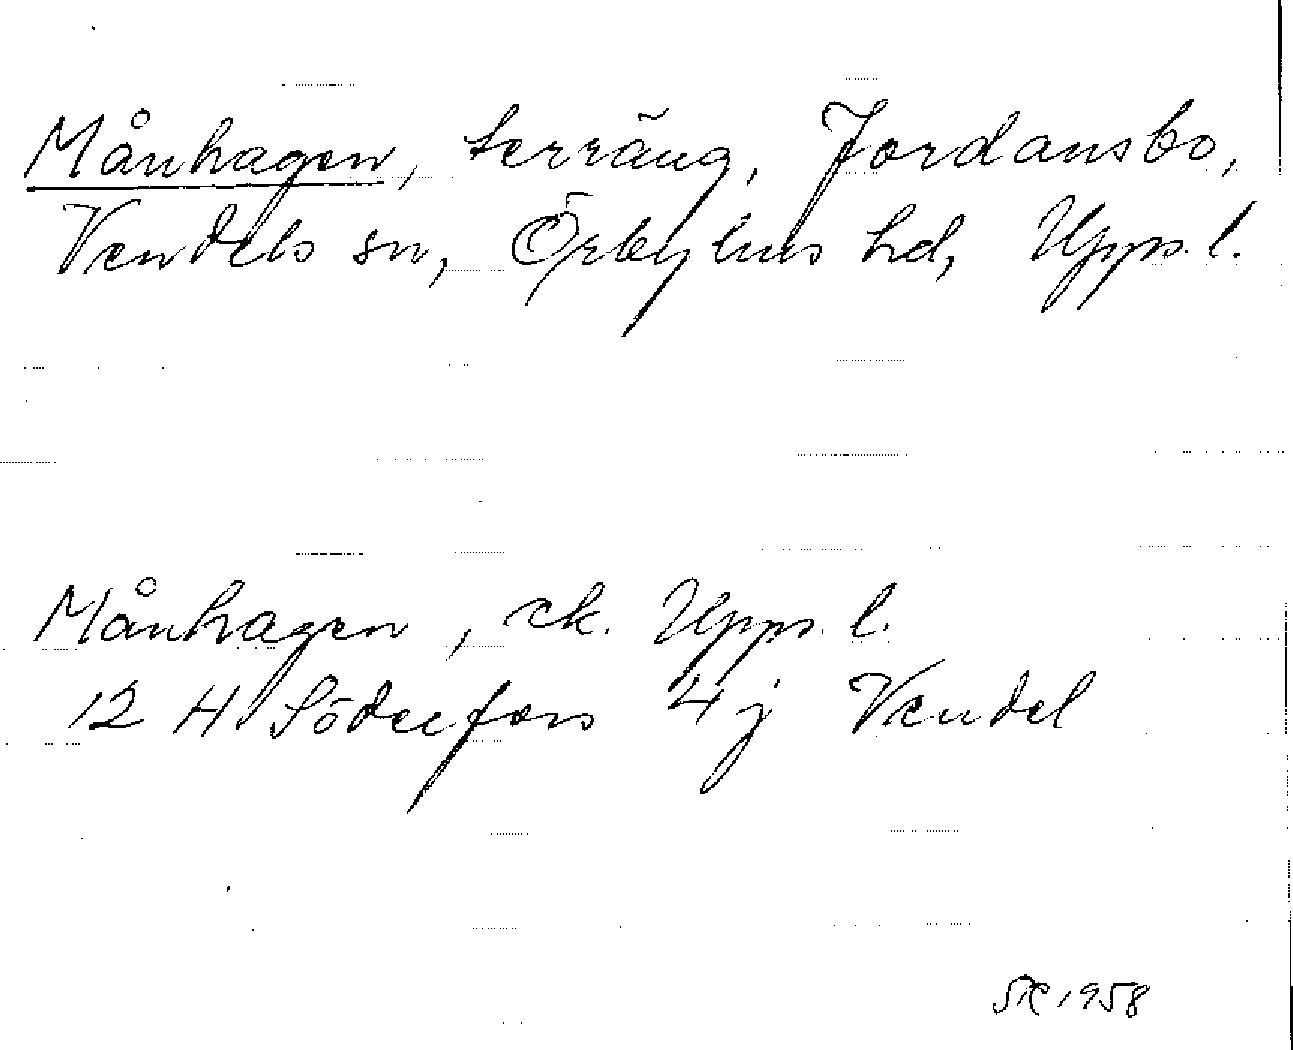 Månhagen, terräng, Jordansbo,
Vendels sn, Örbyhus hd, Uppl.
Månhagen, ek. Uppl.
12 H Söderfors 4j Vendel
1958